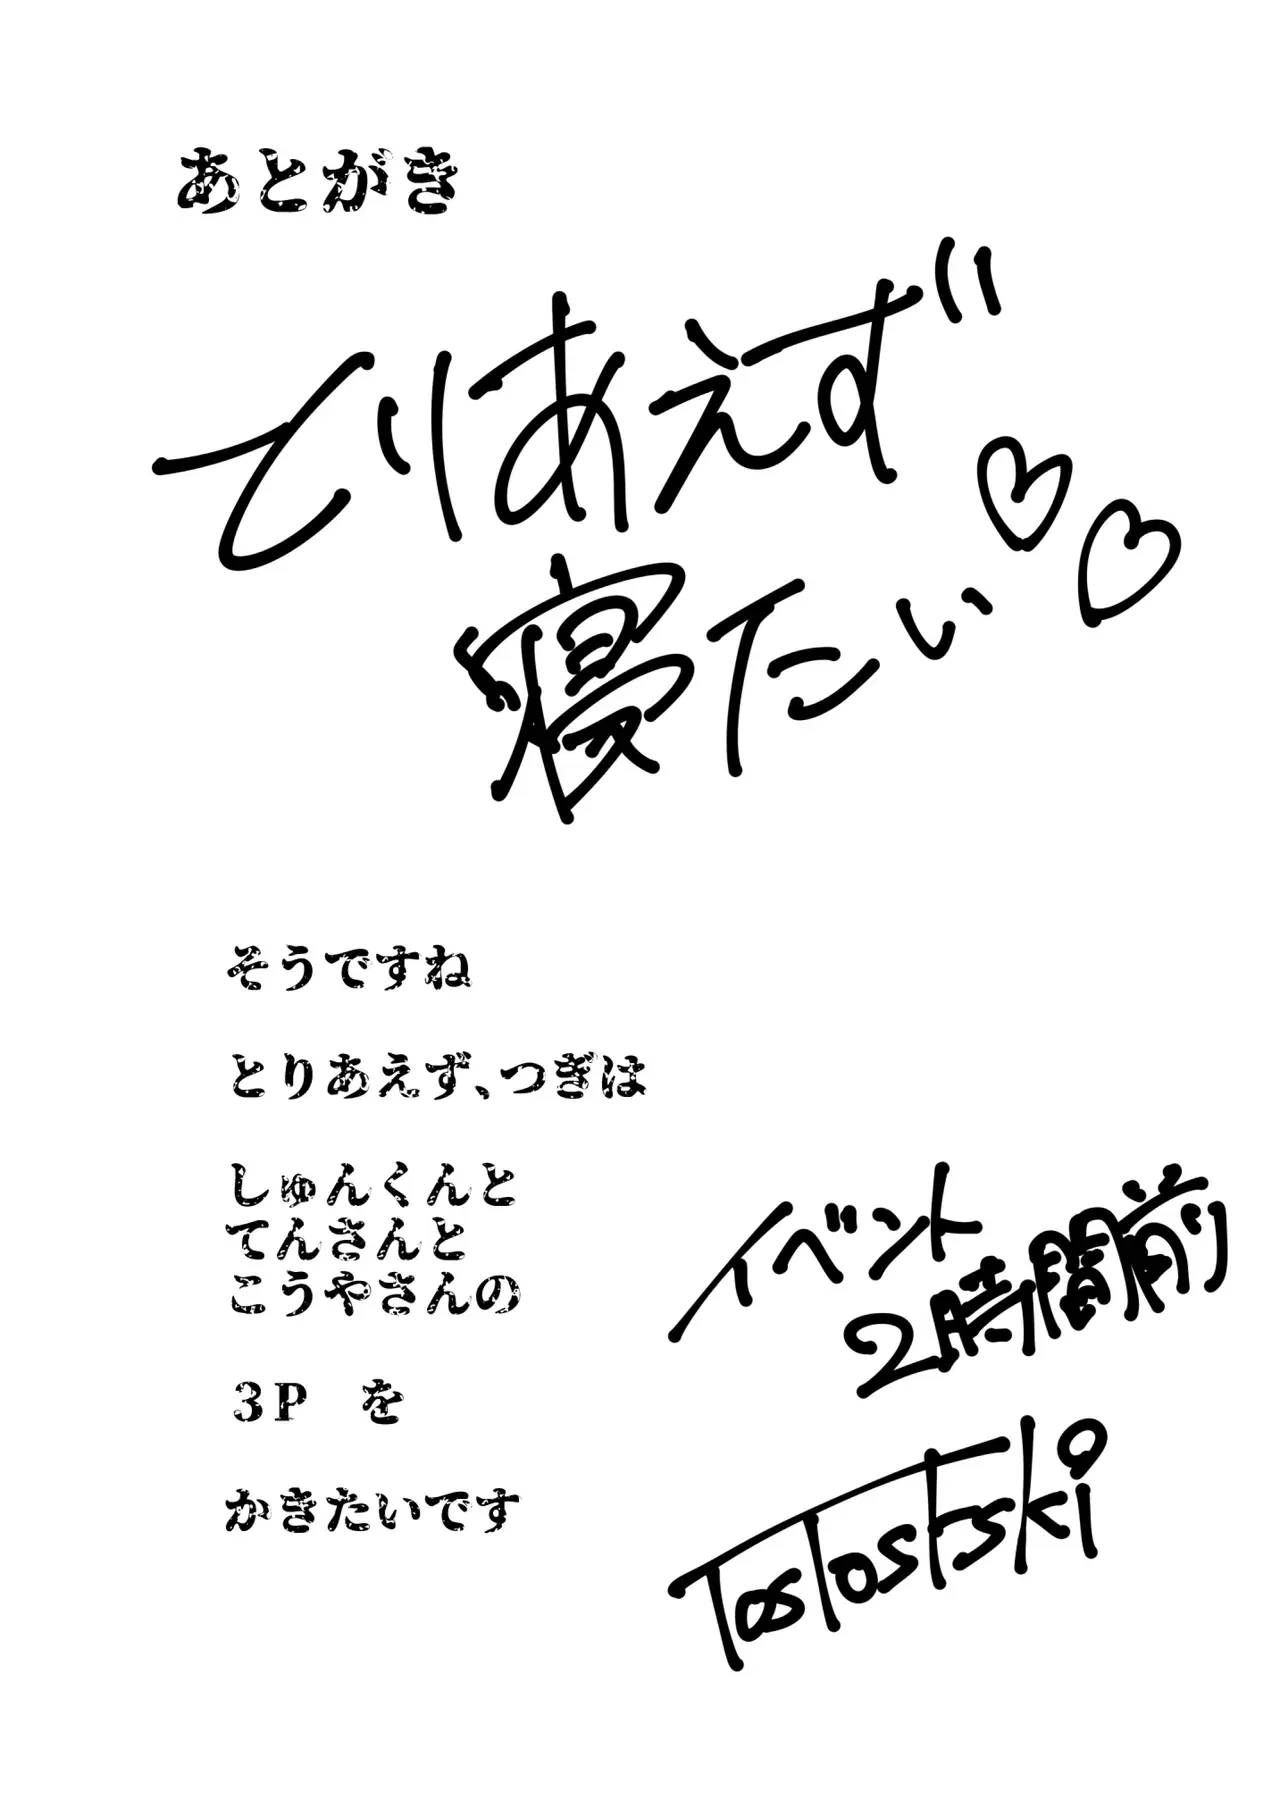 あとがき
とりあえず
寝たい♡♡
そうですね
とりあえず、つぎは
しゅんくんと
てんさんと
こうやさんの
3P を
かきたいです
イベント
2時間前
TasTostski